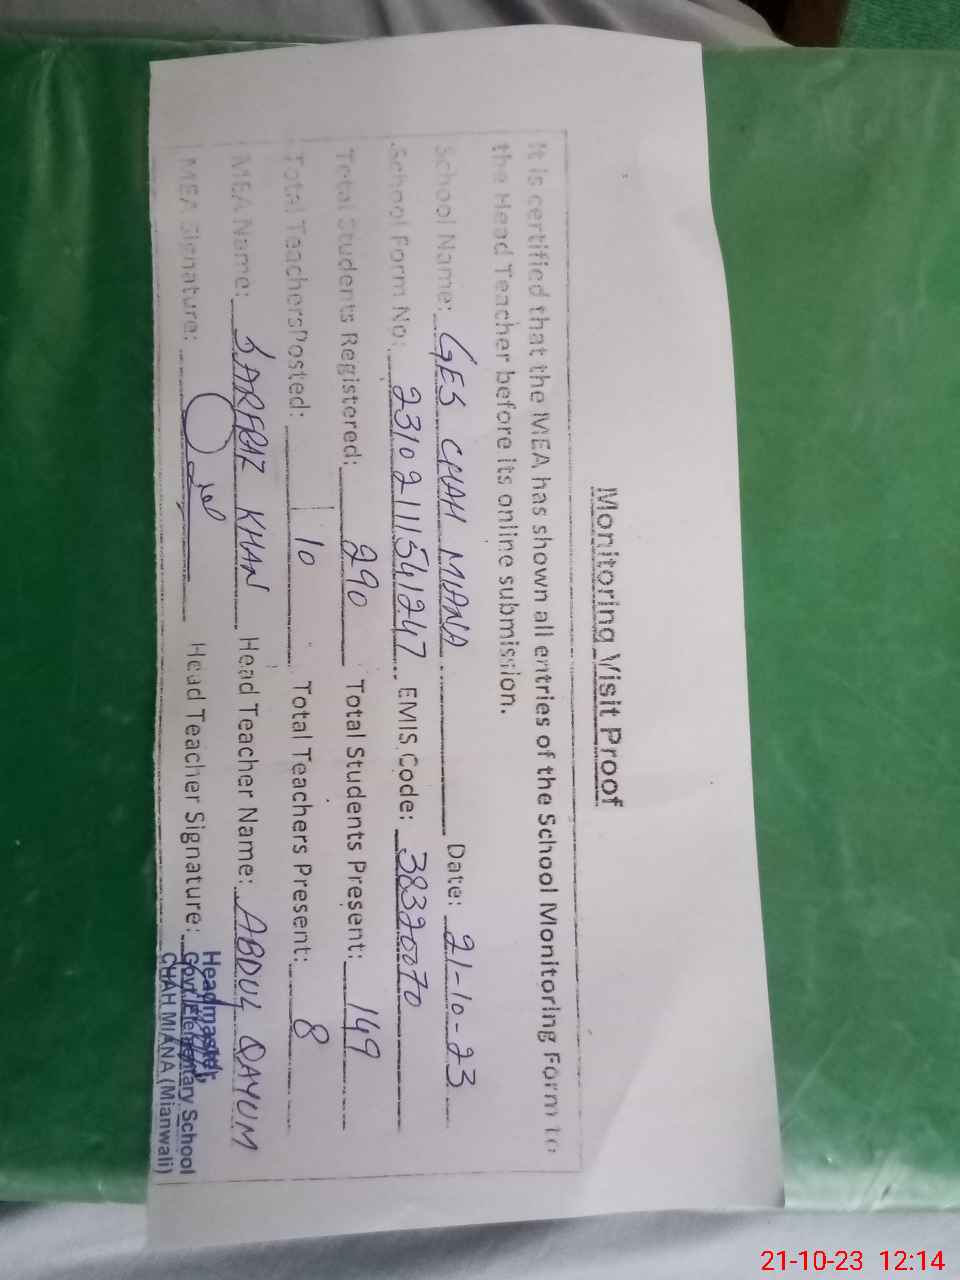 Monitoring Visit Proof
It is certified that the MEA has shown all entries of the School Monitoring Form to
the Head Teacher before its online submission.
School Name: GES CHAH MIANA Date: 21-10-23
School Form No: 23102111541247 EMIS Code: 38320070
Total Students Registered: 290 Total Students Present: 149
Total TeachersPosted: 10 Total Teachers Present: 8
MEA Name: SARFRAZ KHAN Head Teacher Name: ABDUL QAYUM
MEA Signature: Head Teacher Signature:
Headmaster,
Govt. Elementary School
CHAH MIANA (Mianwali)
21-10-23 12:14